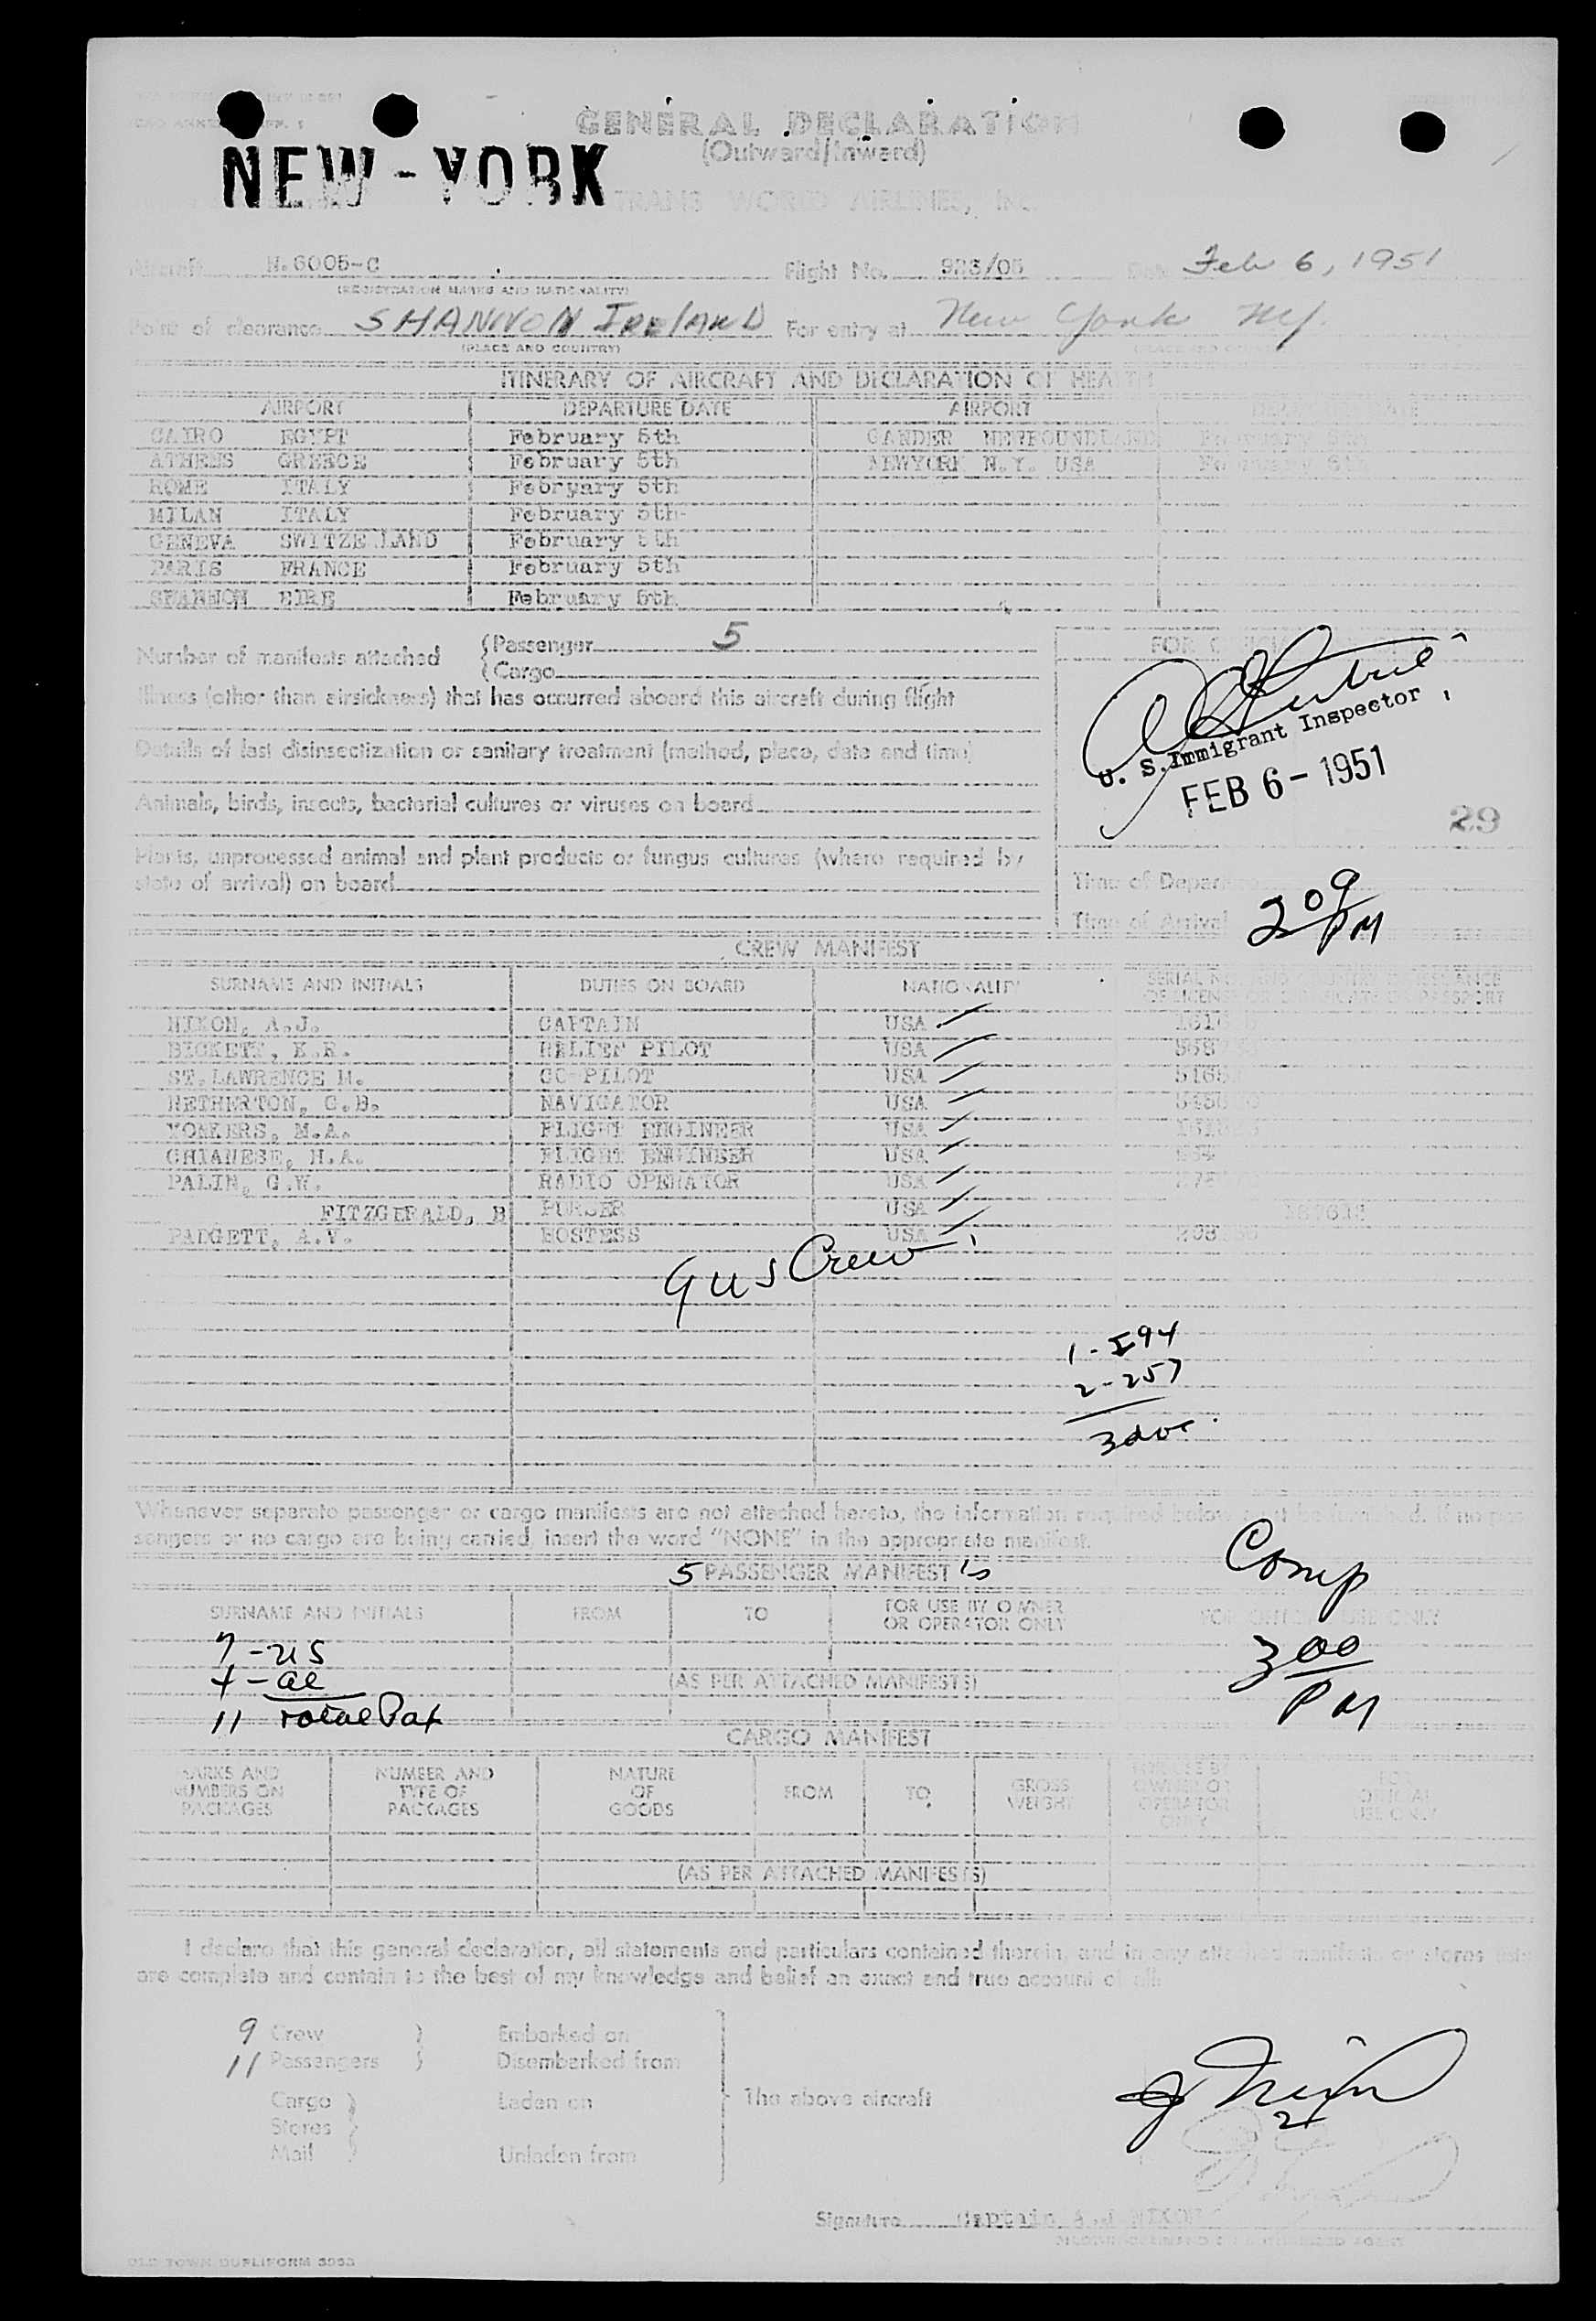 GENERAL DECLARATION
(Outward/Inward)
NEW-YORK
TRANS WORLD AIRLINES, INC.
Aircraft N.6005-C Flight No. Date Feb 6, 1951
(REGISTRATION MARKS AND NATIONALITY)
Point of clearance SHANNON IRELAND For entry at New York NY.
(PLACE AND COUNTRY)
ITINERARY OF AIRCRAFT AND DECLARATION OF HEALTH
AIRPORT DEPARTURE DATE AIRPORT DEPARTURE DATE
CAIRO EGYPT February 5th GANDER NEWFOUNDLAND February
ATHENS GREECE February 5th NEWYORK N.Y. USA February 6th
ROME ITALY Febryary 5th
MILAN ITALY February 5th
GENEVA SWITZE LAND February 5th
PARIS FRANCE February 5th
SHANNON EIRE February 5th
Number of manifests attached {Passenger 5
{Cargo
FOR OFFICIAL
Illness (other than airsickness) that has occurred aboard this aircraft during flight
U. S. Immigrant Inspector
Details of last disinsectization or sanitary treatment (method, place, date and time)
FEB 6 - 1951
Animals, birds, insects, bacterial cultures or viruses on board
29
Plants, unprocessed animal and plant products or fungus cultures (where required by
state of arrival) on board
Time of Departure
Time of Arrival 209 PM
CREW MANIFEST
SURNAME AND INITIALS DUTIES ON BOARD NATIONALITY
NIXON, A.J. CAPTAIN USA
BECKETT, K.R. RELIEF PILOT USA
ST.LAWRENCE H. CO-PILOT USA
HETHERTON, C.B. NAVIGATOR USA
YONKERS, M.A. FLIGHT ENGINEER USA
CHIANESE, H.A. FLIGHT ENGINEER USA
PALIN, G.W. RADIO OPERATOR USA
FITZGERALD, B PURSER USA
PADGETT, A.V. HOSTESS USA
9 US Crew
1 - I94
2 - 257
3 doc.
Whenever separate passenger or cargo manifests are not attached hereto, the information required below must be furnished. If no pas
sengers or no cargo are being carried, insert the word "NONE" in the appropriate manifest.
Comp
5 PASSENGER MANIFEST 's
SURNAME AND INITIALS FROM TO FOR USE BY OWNER
OR OPERATOR ONLY FOR OFFICIAL USE ONLY
7 - US
4 - al
11 Total Pax
(AS PER ATTACHED MANIFESTS)
300
PM
CARGO MANIFEST
MARKS AND
NUMBERS ON
PACKAGES
NUMBER AND
TYPE OF
PACKAGES
NATURE
OF
GOODS
FROM
TO
GROSS
WEIGHT
FOR USE BY
OWNER OR
OPERATOR
ONLY
FOR
OFFICIAL
USE ONLY
(AS PER ATTACHED MANIFESTS)
I declare that this general declaration, all statements and particulars contained therein, and in any attached manifests or stores lists
are complete and contain to the best of my knowledge and belief an exact and true account of all:
9 Crew } Embarked on
11 Passengers } Disembarked from
Cargo } Laden on The above aircraft
Stores }
Mail } Unladen from
Signature Captain A.J NIXON
OLD TOWN DUPLIFORM